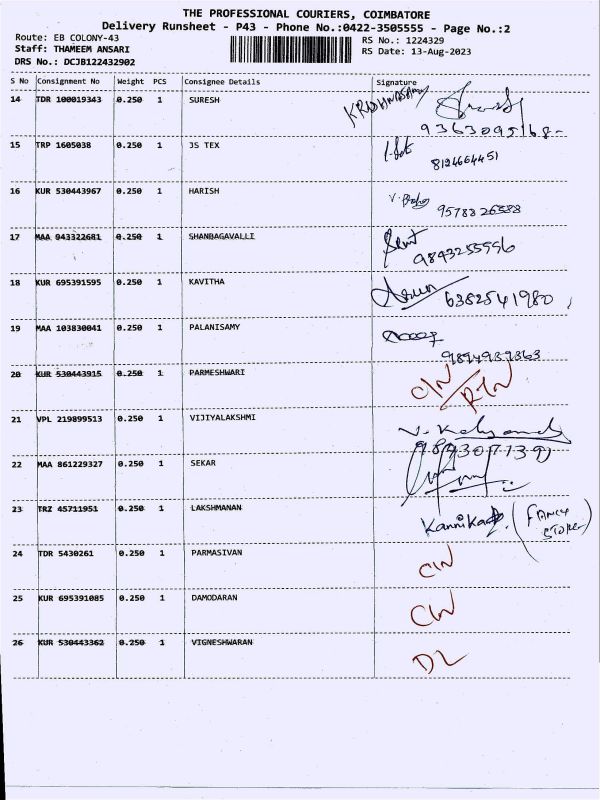 THE PROFESSIONAL COURIERS, COIMBATORE
Delivery Runsheet - P43 - Phone No.:0422-3505555 - Page No.:2
Route: EB COLONY-43 RS No.: 1224329
Staff: THAMEEM ANSARI RS Date: 13-Aug-2023
DRS No.: DCJB122432902
S No Consignment No Weight PCS Consignee Details Signature
14 TDR 100019343 0.250 1 SURESH KRISHNASAMY
9363095168-
15 TRP 1605038 0.250 1 JS TEX
8124664451
16 KUR 530443967 0.250 1 HARISH
9578826588
17 MAA 943322681 0.250 1 SHANBAGAVALLI
9843255596
18 KUR 695391595 0.250 1 KAVITHA
6382541980
19 MAA 103830041 0.250 1 PALANISAMY
9894939363
20 KUR 530443915 0.250 1 PARMESHWARI CIN/RTN
21 VPL 219899513 0.250 1 VIJIYALAKSHMI
9843071391
22 MAA 861229327 0.250 1 SEKAR
23 TRZ 45711951 0.250 1 LAKSHMANAN Kannika (FANCY STORE)
24 TDR 5430261 0.250 1 PARMASIVAN CIN
25 KUR 695391085 0.250 1 DAMODARAN CIN
26 KUR 530443362 0.250 1 VIGNESHWARAN DL